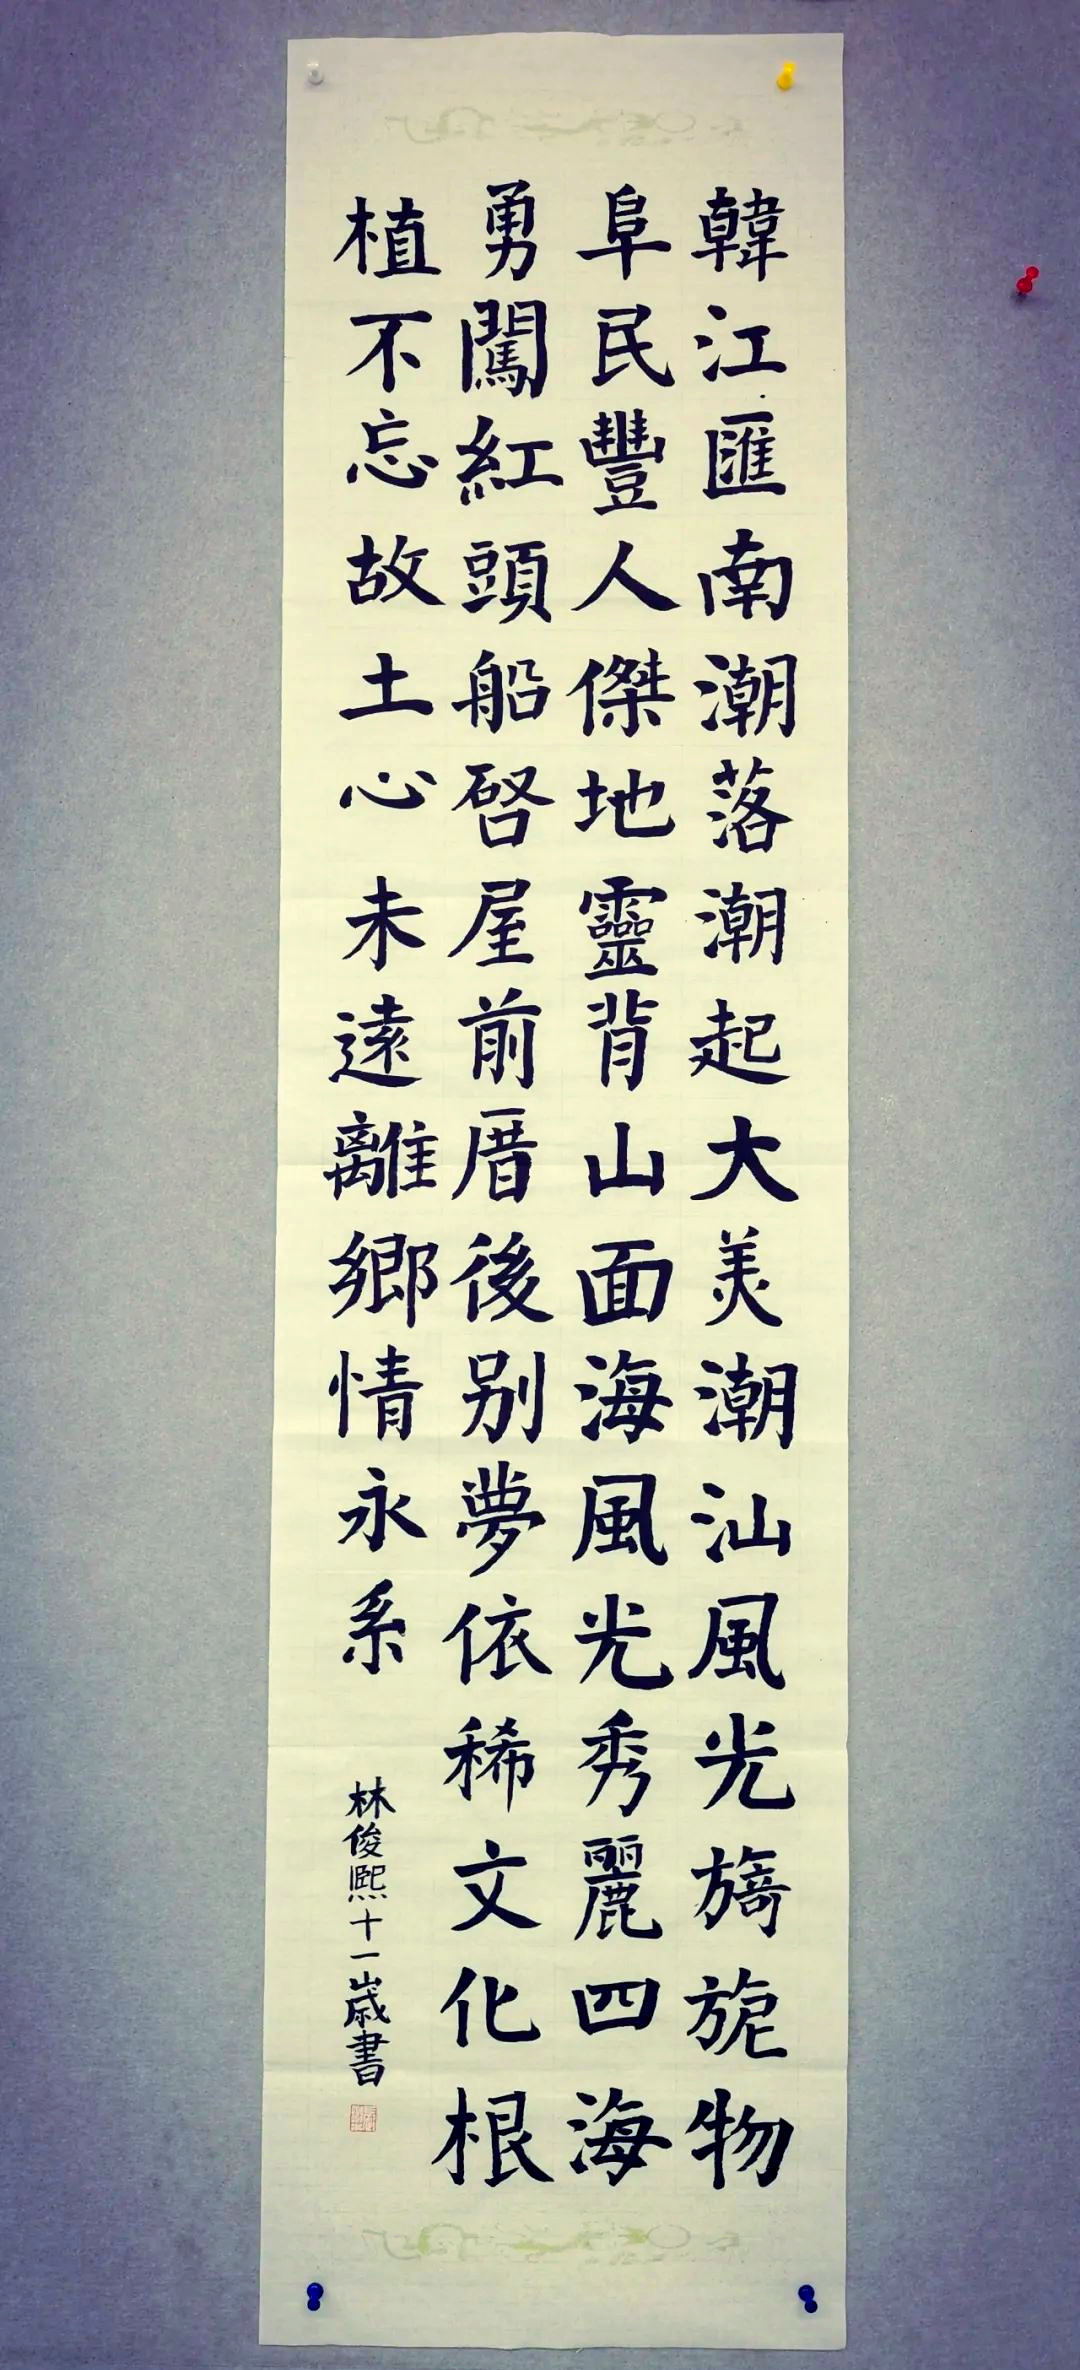 韓江匯南潮落潮起大美潮汕風光旖旎物
阜民豐人傑地靈背山面海風光秀麗四海
勇闖紅頭船啓屋前厝後别夢依稀文化根
植不忘故土心未遠離鄉情永系
林俊熙十一歲書